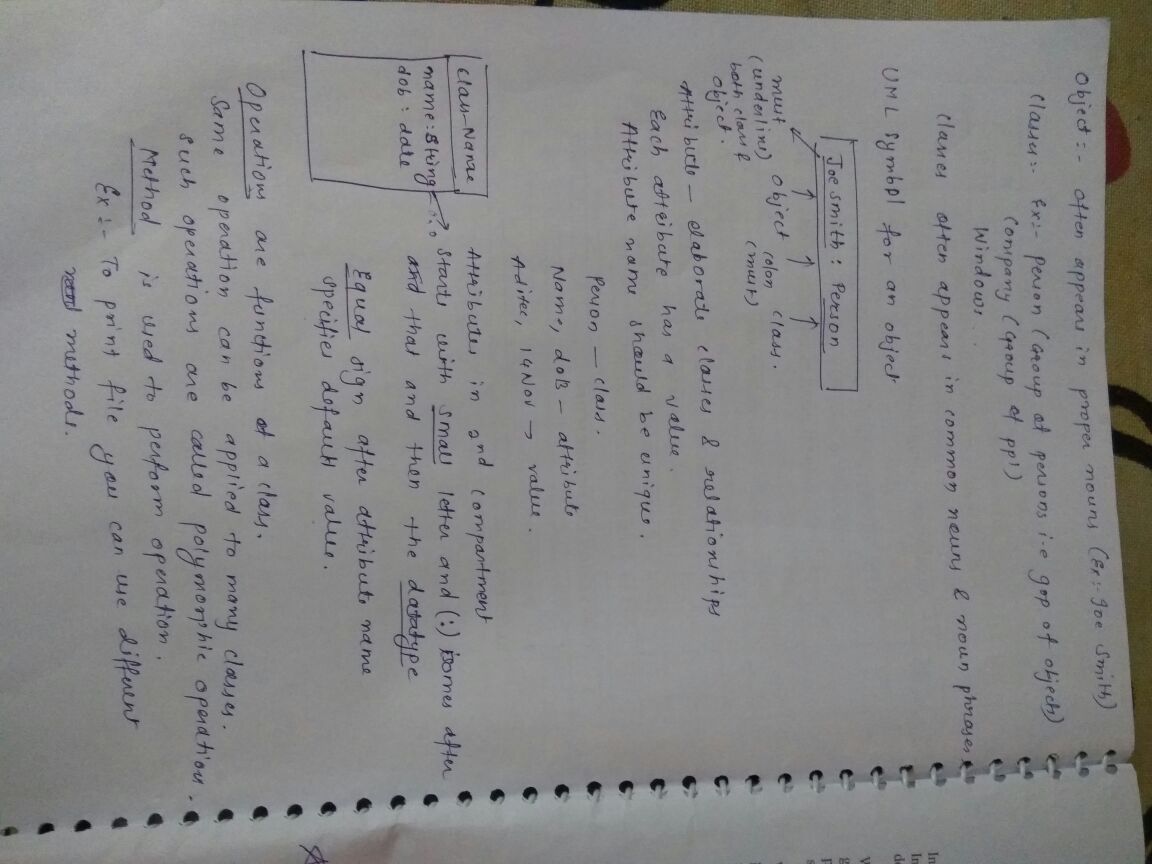 Object :- often appears in proper nouns (Ex:- Joe Smith)
Class :- Ex:- person (Group of persons i.e gop of objects)
Company (Group of ppl)
Windows.
Classes often appears in common nouns & noun phrases
UML symbol for an object
Joe Smith : Person
must object colon class.
(underline) (must)
both class &
object.
Attribute - elaborate classes & relationships
Each attribute has a value.
Attribute name should be unique.
Person — class.
Name, doB - attribute
Aditee, 14 Nov → value.
Class-Name
name: String
dob : date
Attributes in 2nd compartment
Starts with small letter and (:) comes after
that and then the datatype
Equal sign after attribute name
specifies default value.
Operations are functions of a class.
Same operation can be applied to many classes.
such operations are called polymorphic operation.
Method is used to perform operation.
Ex :- To print file you can use different
methods.